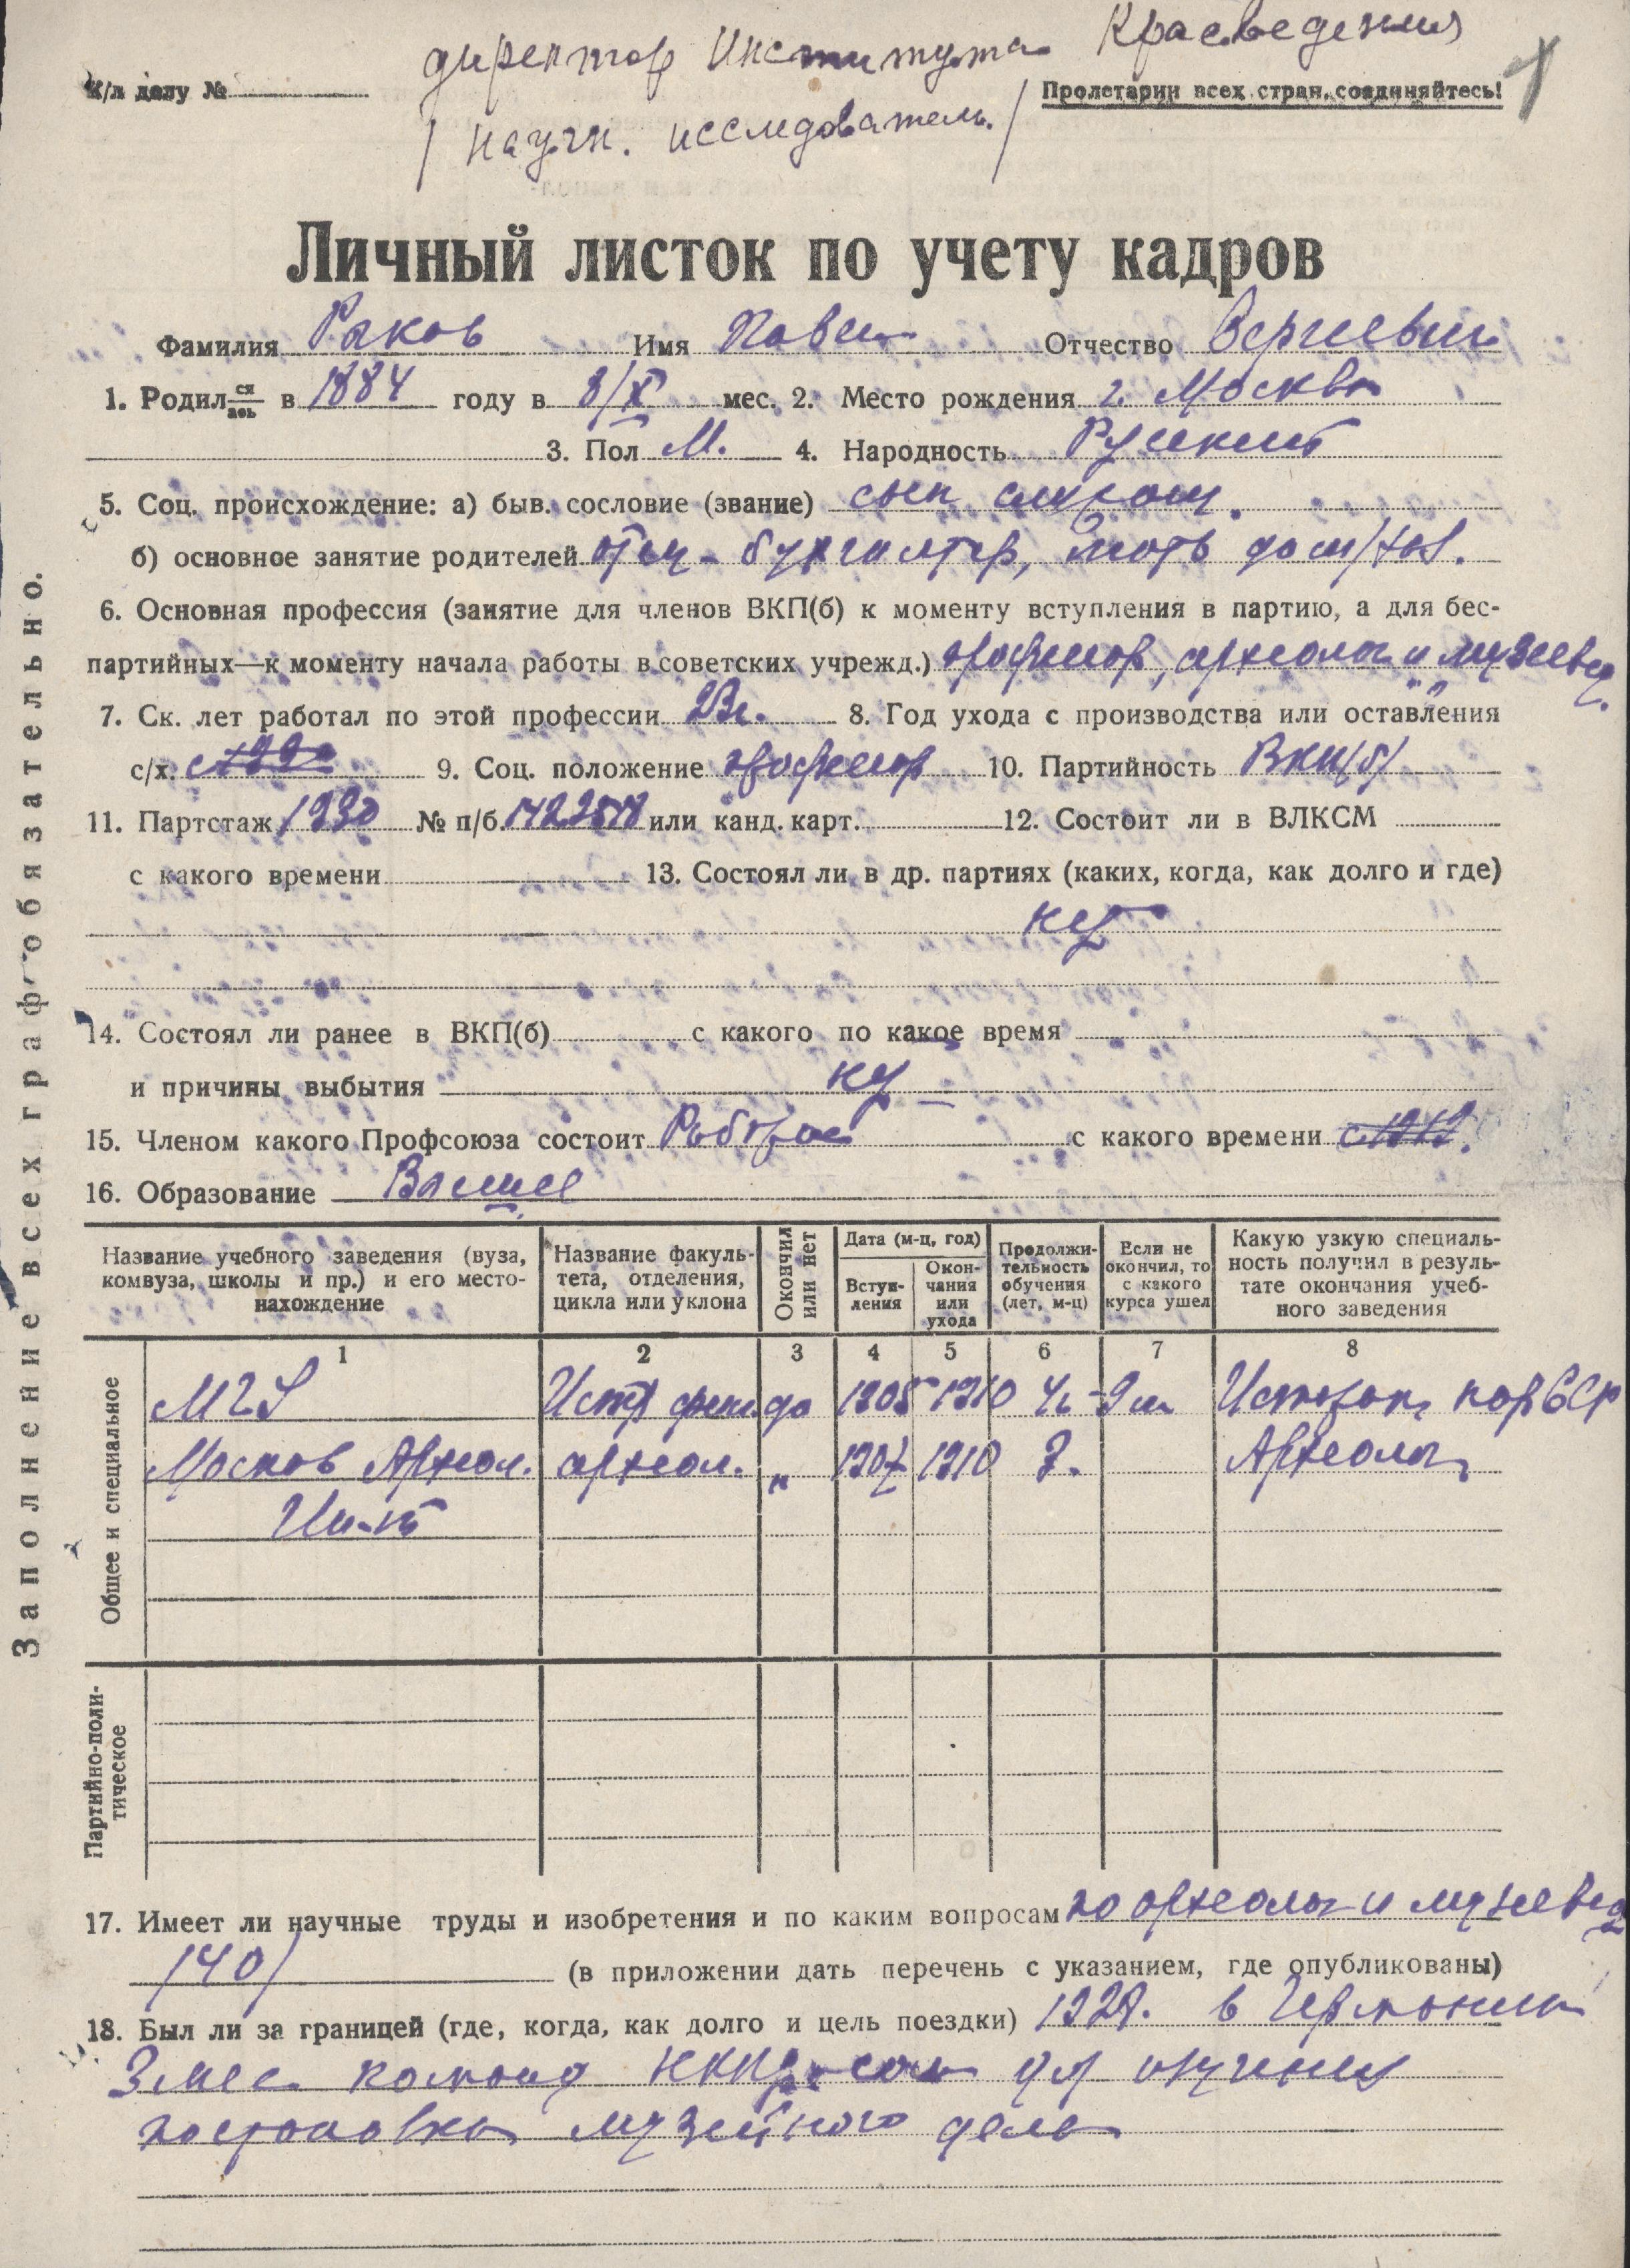 директор Института Краеведения
К/л делу № Пролетарии всех стран, соединяйтесь!
/ научн. исследователь. /
Личный листок по учету кадров
Фамилия Раков Имя Павел Отчество Сергиевич
1. Родил ся ась в 1884 году в 8/X мес. 2. Место рождения г. Москва
3. Пол М. 4. Народность Русский
5. Соц. происхождение: а) быв. сословие (звание) сын
б) основное занятие родителей отец - бухгалтер, мать дом/хоз.
6. Основная профессия (занятие для членов ВКП(б) к моменту вступления в партию, а для бес-
партийных—к моменту начала работы в советских учрежд.) профессор, археолог и музеевед.
7. Ск. лет работал по этой профессии 23 г. 8. Год ухода с производства или оставления
с/х. 9. Соц. положение профессор 10. Партийность ВКП(б)
11. Партстаж 1930 № п/б. или канд. карт. 12. Состоит ли в ВЛКСМ
с какого времени 13. Состоял ли в др. партиях (каких, когда, как долго и где)
нет
14. Состоял ли ранее в ВКП(б) с какого по какое время
и причины выбытия нет
15. Членом какого Профсоюза состоит Рабпрос с какого времени с 1919.
16. Образование Высшее
Название учебного заведения (вуза, комвуза, школы и пр.) и его место-нахождение
Название факуль-тета, отделения, цикла или уклона
Окончил или нет
Дата (м-ц, год)
Вступ-ления
Окон-чания или ухода
Продолжи-тельность обучения (лет, м-ц)
Если не окончил, то с какого курса ушел
Какую узкую специаль-ность получил в резуль-тате окончания учеб-ного заведения
1 2 3 4 5 6 7 8
Общее и специальное
МГУ да 1905 1910 Историк нар СССР
Москов Археол. археол. " 1907 1910 3. Археолог
Ин-т
Партийно-поли-тическое
17. Имеет ли научные труды и изобретения и по каким вопросам по археолог и музеевед
/40/ (в приложении дать перечень с указанием, где опубликованы)
18. Был ли за границей (где, когда, как долго и цель поездки) в Германии
3 мес. команд НКПросом для изучения
постановки музейного дела
Заполнение всех граф обязательно.